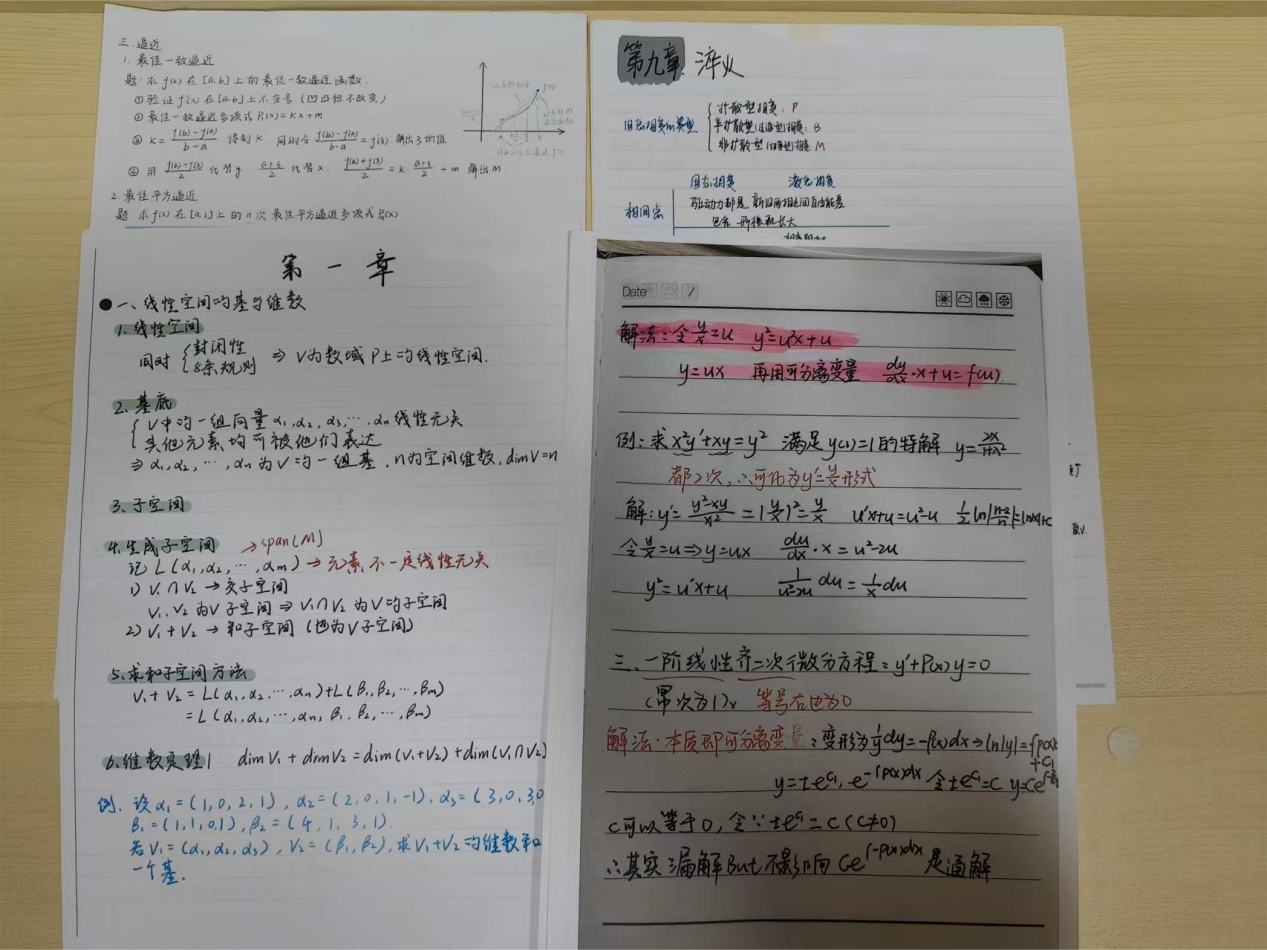 三.逼近
1.最佳一致逼近
题:求f(x)在[a,b]上的最佳一致逼近函数.
①验证f''(x)在[a,b]上不变号(凹凸性不改变)
②最佳一致逼近多项式P₁(x)=kx+m
③ k=\frac{f(b)-f(a)}{b-a} 得到k. 同时令\frac{f(b)-f(a)}{b-a}=f'(ξ) 解出ξ的值
④用 \frac{f(a)+f(ξ)}{2} 代替y \frac{a+ξ}{2} 代替x. \frac{f(a)+f(ξ)}{2}=k\frac{a+ξ}{2}+m 解出m.
2.最佳平方逼近
题:求f(x)在[0,1]上的n次最佳平方逼近多项式P(x)
第九章 淬火
固态相变的类型
扩散型相变:P
半扩散型(过渡型)相变:B
非扩散型(切变型)相变M
固态相变 液态相变
相同点
驱动力都是新旧两相之间自由能差
包含 形核和长大
第一章
一、线性空间的基与维数
1.线性空间
同时{封闭性
8条规则 ⇒ V为数域P上的线性空间.
2.基底
{V中的一组向量α₁,α₂,α₃,…,αₙ线性无关
其他元素均可被他们表达
⇒α₁,α₂,…,αₙ为V的一组基,n为空间维数,dimV=n
3.子空间
4.生成子空间 →span(M)
记L(α₁,α₂,…,αₘ)→元素不一定线性无关
1) V₁∩V₂→交子空间
V₁,V₂为V子空间⇒V₁∩V₂为V的子空间
2) V₁+V₂→和子空间(也为V子空间)
5.求和子空间方法
V₁+V₂=L(α₁,α₂,…,αₙ)+L(β₁,β₂,…,βₘ)
=L(α₁,α₂,…,αₙ,β₁,β₂,…,βₘ)
6.维数定理1 dimV₁+dimV₂=dim(V₁+V₂)+dim(V₁∩V₂)
例.设α₁=(1,0,2,1),α₂=(2,0,1,-1),α₃=(3,0,3,0
β₁=(1,1,0,1),β₂=(4,1,3,1).
若V₁=(α₁,α₂,α₃),V₂=(β₁,β₂),求V₁+V₂的维数和
一个基.
Date /
解法:令\frac{y}{x}=u y²=u'x+u
y=ux 再用可分离变量 \frac{dy}{dx}·x+u=f(u)
例:求x²y'+xy=y² 满足y(1)=1的特解 y=\frac{2x}{1+x²}
都2次,∴可化为y'=\frac{y}{x}形式
解:y'=\frac{y²-xy}{x²}=(\frac{y}{x})²=\frac{y}{x} u'x+u=u²-u ½ln|\frac{u-2}{u}|=ln|x|+c
令\frac{y}{x}=u⇒y=ux \frac{du}{dx}·x=u²-2u
y²=u'x+u \frac{1}{u²-2u}du=\frac{1}{x}du
三、一阶线性齐二次微分方程=y'+P(x)y=0
(幂次为1)x 等号右边为0
解法:本质即可分离变量:变形为\frac{1}{y}dy=-P(x)dx⇒ln|y|=-∫P(x)
+C₁
y=±e^{C₁}·e^{-∫P(x)dx} 令±e^{C₁}=C y=Ce^{∫-P(x)}
C可以等于0,令∵±e^{C₁}=C(C≠0)
∴其实漏解But不影响Ce^{∫-P(x)dx}是通解